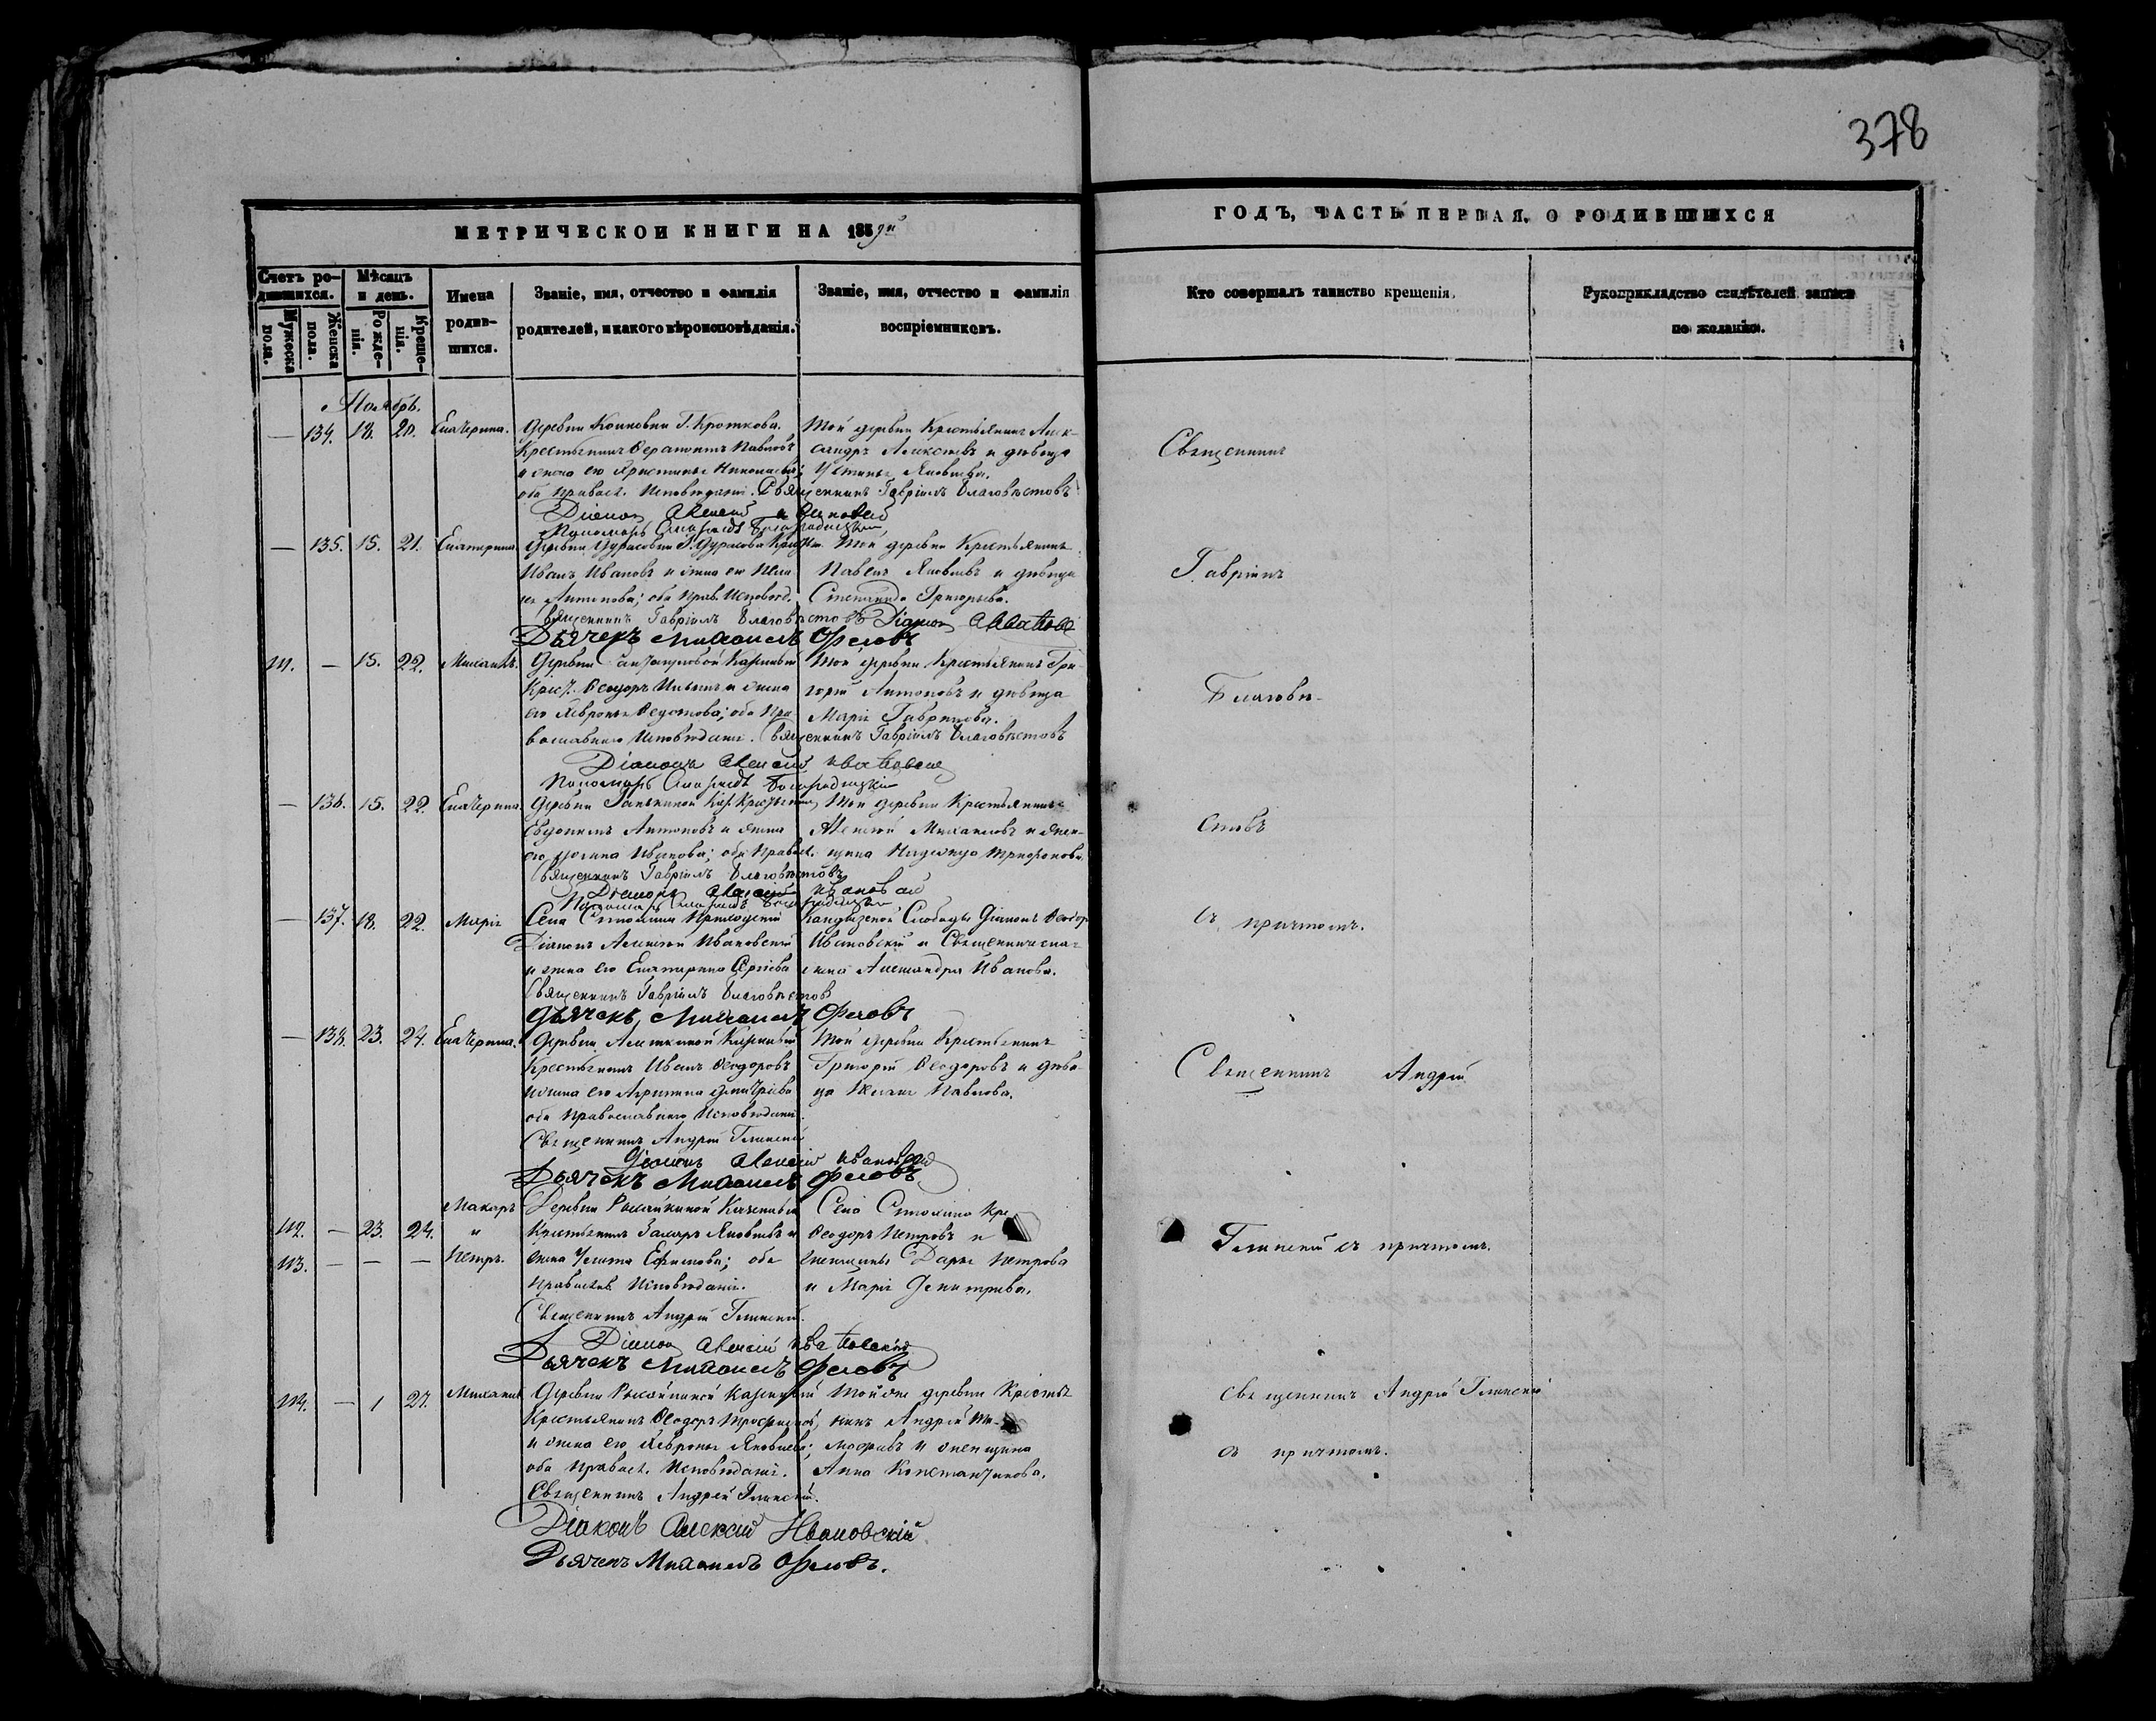 378
МЕТРИЧЕСКОЙ КНИГИ НА 1859й
ГОДЪ, ЧАСТЬ ПЕРВАЯ, О РОДИВШИХСЯ
Счетъ родившихся.
Мужеска пола.
Женска пола.
Мѣсяцъ и день.
Рожденія.
Крещенія.
Имена родившихся.
Званіе, имя, отчество и фамилія
родителей, и какого вѣроисповѣданія.
Званіе, имя, отчество и фамилія
воспріемниковъ.
Кто совершалъ таинство крещенія.
Рукоприкладство свидѣтелей записи
по желанію.
Ноябрь.
— 134. 18. 20. Екатерина. Деревни Г. Кроткова.
Крестьянинъ Павловъ
и жена его Христина Николаева;
оба правосл. исповѣданія. Священникъ Гавріилъ Благовѣстовъ
Той деревни Крестьянинъ Алек-
сандръ Алексѣевъ и дѣвица
Устинья Яковлева.
Діаконъ Алексій Ивановскій
Пономарь
— 135. 15. 21. Екатерина. Деревни Дурасовки Г. Дурасова Крест.
Иванъ Ивановъ и жена его
Антонова; оба прав. исповѣд.
Той деревни Крестьянинъ
Павелъ Яковлевъ и дѣвица
Степанида Григорьева.
Священникъ Гавріилъ Благовѣстовъ Діаконъ
Дьячекъ Михаилъ Орловъ
111. — 15. 22. Михаилъ. Деревни Казенный
Крест. Ѳеодоръ Ильинъ и жена
его Хавронья Ѳедотова; оба пра-
вославнаго исповѣданія. Священникъ Гавріилъ Благовѣстовъ
Той деревни Крестьянинъ Гри-
горій Антоновъ и дѣвица
Марія Гаврилова.
Діаконъ Алексій Ивановскій
Пономарь
— 136. 15. 22. Екатерина. Деревни Ганькиной Каз. Крестьянинъ
Евдокимъ Антоновъ и жена
его Ивановна; оба правосл.
Той деревни Крестьянинъ
Алексій Михайловъ и жен-
щина Надежда Трифонова.
Священникъ Гавріилъ Благовѣстовъ
Діаконъ Алексій Ивановскій
Пономарь
— 137. 18. 22. Марія Села Приходскій
Діаконъ Алексій Ивановскій
и жена его Екатерина Сергіева
Слободы Діаконъ Ѳеодоръ
Ивановскій и Священническая
жена Александра Иванова.
Священникъ Гавріилъ Благовѣстовъ
Дьячекъ Михаилъ Орловъ
— 138. 23. 24. Екатерина. Деревни Алешкиной Казенный
Крестьянинъ Иванъ Ѳеодоровъ
и жена его Агрипина Димитріева
оба православнаго исповѣданія.
Той деревни Крестьянинъ
Григорій Ѳеодоровъ и дѣви-
ца Павлова.
Священникъ Андрей Глинскій
Діаконъ Алексій Ивановскій
Дьячекъ Михаилъ Орловъ
112. — 23. 24. Макаръ и
113. — — — Петръ.
Деревни Казенный
Крестьянинъ Захаръ Яковлевъ и
жена Ефимова; оба
православ. исповѣданія.
Села Кре
Ѳеодоръ Петровъ и
женщины Дарья Петрова
и Марія Димитріева.
Священникъ Андрей Глинскій.
Діаконъ Алексій Ивановскій
Дьячекъ Михаилъ Орловъ
114. — 1 27. Михаилъ Деревни Казенный
Крестьянинъ Ѳеодоръ Трофимовъ,
и жена его Хавронья Яковлева;
оба правосл. исповѣданія.
Той же деревни Крестья-
нинъ Андрей Ти-
мофѣевъ и женщина
Анна Константинова.
Священникъ Андрей Глинскій.
Діаконъ Алексій Ивановскій.
Дьячекъ Михаилъ Орловъ.
Священникъ
Гавріилъ
Благовѣ-
стовъ
съ причтомъ.
Священникъ Андрей
Глинскій съ причтомъ.
Священникъ Андрей Глинскій
съ причтомъ.